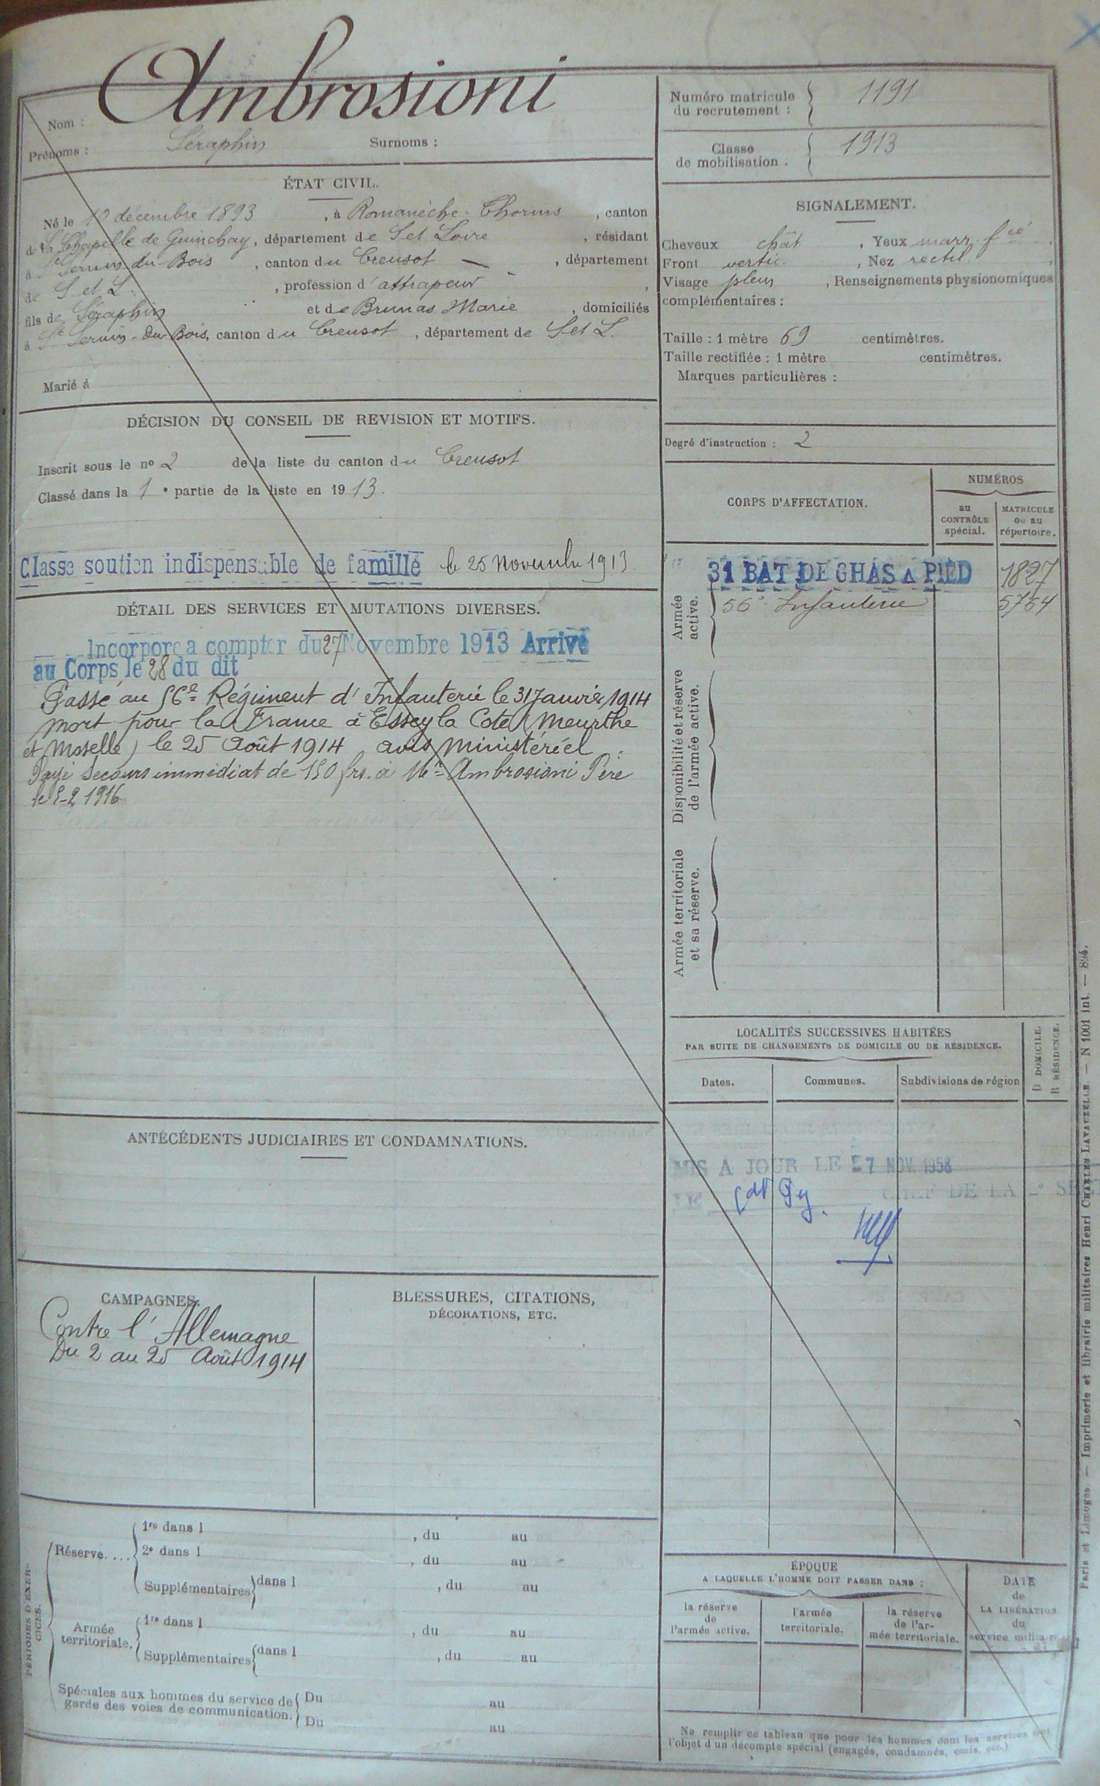 Nom : Ambrosioni
Prénoms : Séraphin Surnoms :
ÉTAT CIVIL.
Né le décembre 1893, à Romanèche-Thorins, canton
de la Chapelle de Guinchay, département de S et Loire, résidant
à St Sernin-du-Bois, canton du Creusot, département
de S. et L., profession d'attrapeur,
fils de Séraphin et de Brunas Marie, domiciliés
à St Sernin-du-Bois, canton du Creusot, département de S et L.
Marié à
DÉCISION DU CONSEIL DE REVISION ET MOTIFS.
Inscrit sous le no 2 de la liste du canton du Creusot
Classé dans la 1e partie de la liste en 1913.
Classé soutien indispensable de famille le 25 Novembre 1913
DÉTAIL DES SERVICES ET MUTATIONS DIVERSES.
Incorporé à compter du 27 Novembre 1913 Arrivé
au Corps le 28 du dit
Passé au 56e Régiment d'Infanterie le 31 Janvier 1914
mort pour la France à Essey la Cote (Meurthe
et Moselle) le 25 Août 1914 avis ministériel.
Payé secours immédiat de 150 frs. à Mr Ambrosioni Père
le 5-2 1916
ANTÉCÉDENTS JUDICIAIRES ET CONDAMNATIONS.
CAMPAGNES.
Contre l'Allemagne
Du 2 au 25 Août 1914
BLESSURES, CITATIONS,
DÉCORATIONS, ETC.
PÉRIODES D'EXERCICES.
Réserve.... 1re dans l , du au
2e dans l , du au
Supplémentaires dans l , du au
Armée territoriale. 1re dans l , du au
Supplémentaires dans l , du au
Spéciales aux hommes du service de Du au
garde des voies de communication. Du au
Numéro matricule
du recrutement : 1191
Classe
de mobilisation : 1913
SIGNALEMENT.
Cheveux chât, Yeux marr. fcé,
Front vertic., Nez rectil,
Visage plein, Renseignements physionomiques
complémentaires :
Taille : 1 mètre 69 centimètres.
Taille rectifiée : 1 mètre centimètres.
Marques particulières :
Degré d'instruction : 2
CORPS D'AFFECTATION.
NUMÉROS
au
CONTRÔLE
spécial.
MATRICULE
ou au
répertoire.
Armée
active.
31 BAT DE CHAS A PIED 1827
56e Infanterie 5754
Disponibilité et réserve
de l'armée active.
Armée territoriale
et sa réserve.
LOCALITÉS SUCCESSIVES HABITÉES
PAR SUITE DE CHANGEMENTS DE DOMICILE OU DE RÉSIDENCE.
Dates. Communes. Subdivisions de région
D DOMICILE.
R RÉSIDENCE.
MIS A JOUR LE 27 NOV. 1958
LE CHEF DE LA 2e SE
ÉPOQUE
A LAQUELLE L'HOMME DOIT PASSER DANS :
la réserve
de
l'armée active.
l'armée
territoriale.
la réserve
de l'ar-
mée territoriale.
DATE
de
LA LIBÉRATION
du
service militaire
Ne remplir ce tableau que pour les hommes dont les services ont
l'objet d'un décompte spécial (engagés, condamnés, omis, etc.)
Paris et Limoges. — Imprimerie et librairie militaires Henri CHARLES LAVAUZELLE. — N 1001 int. — 894.